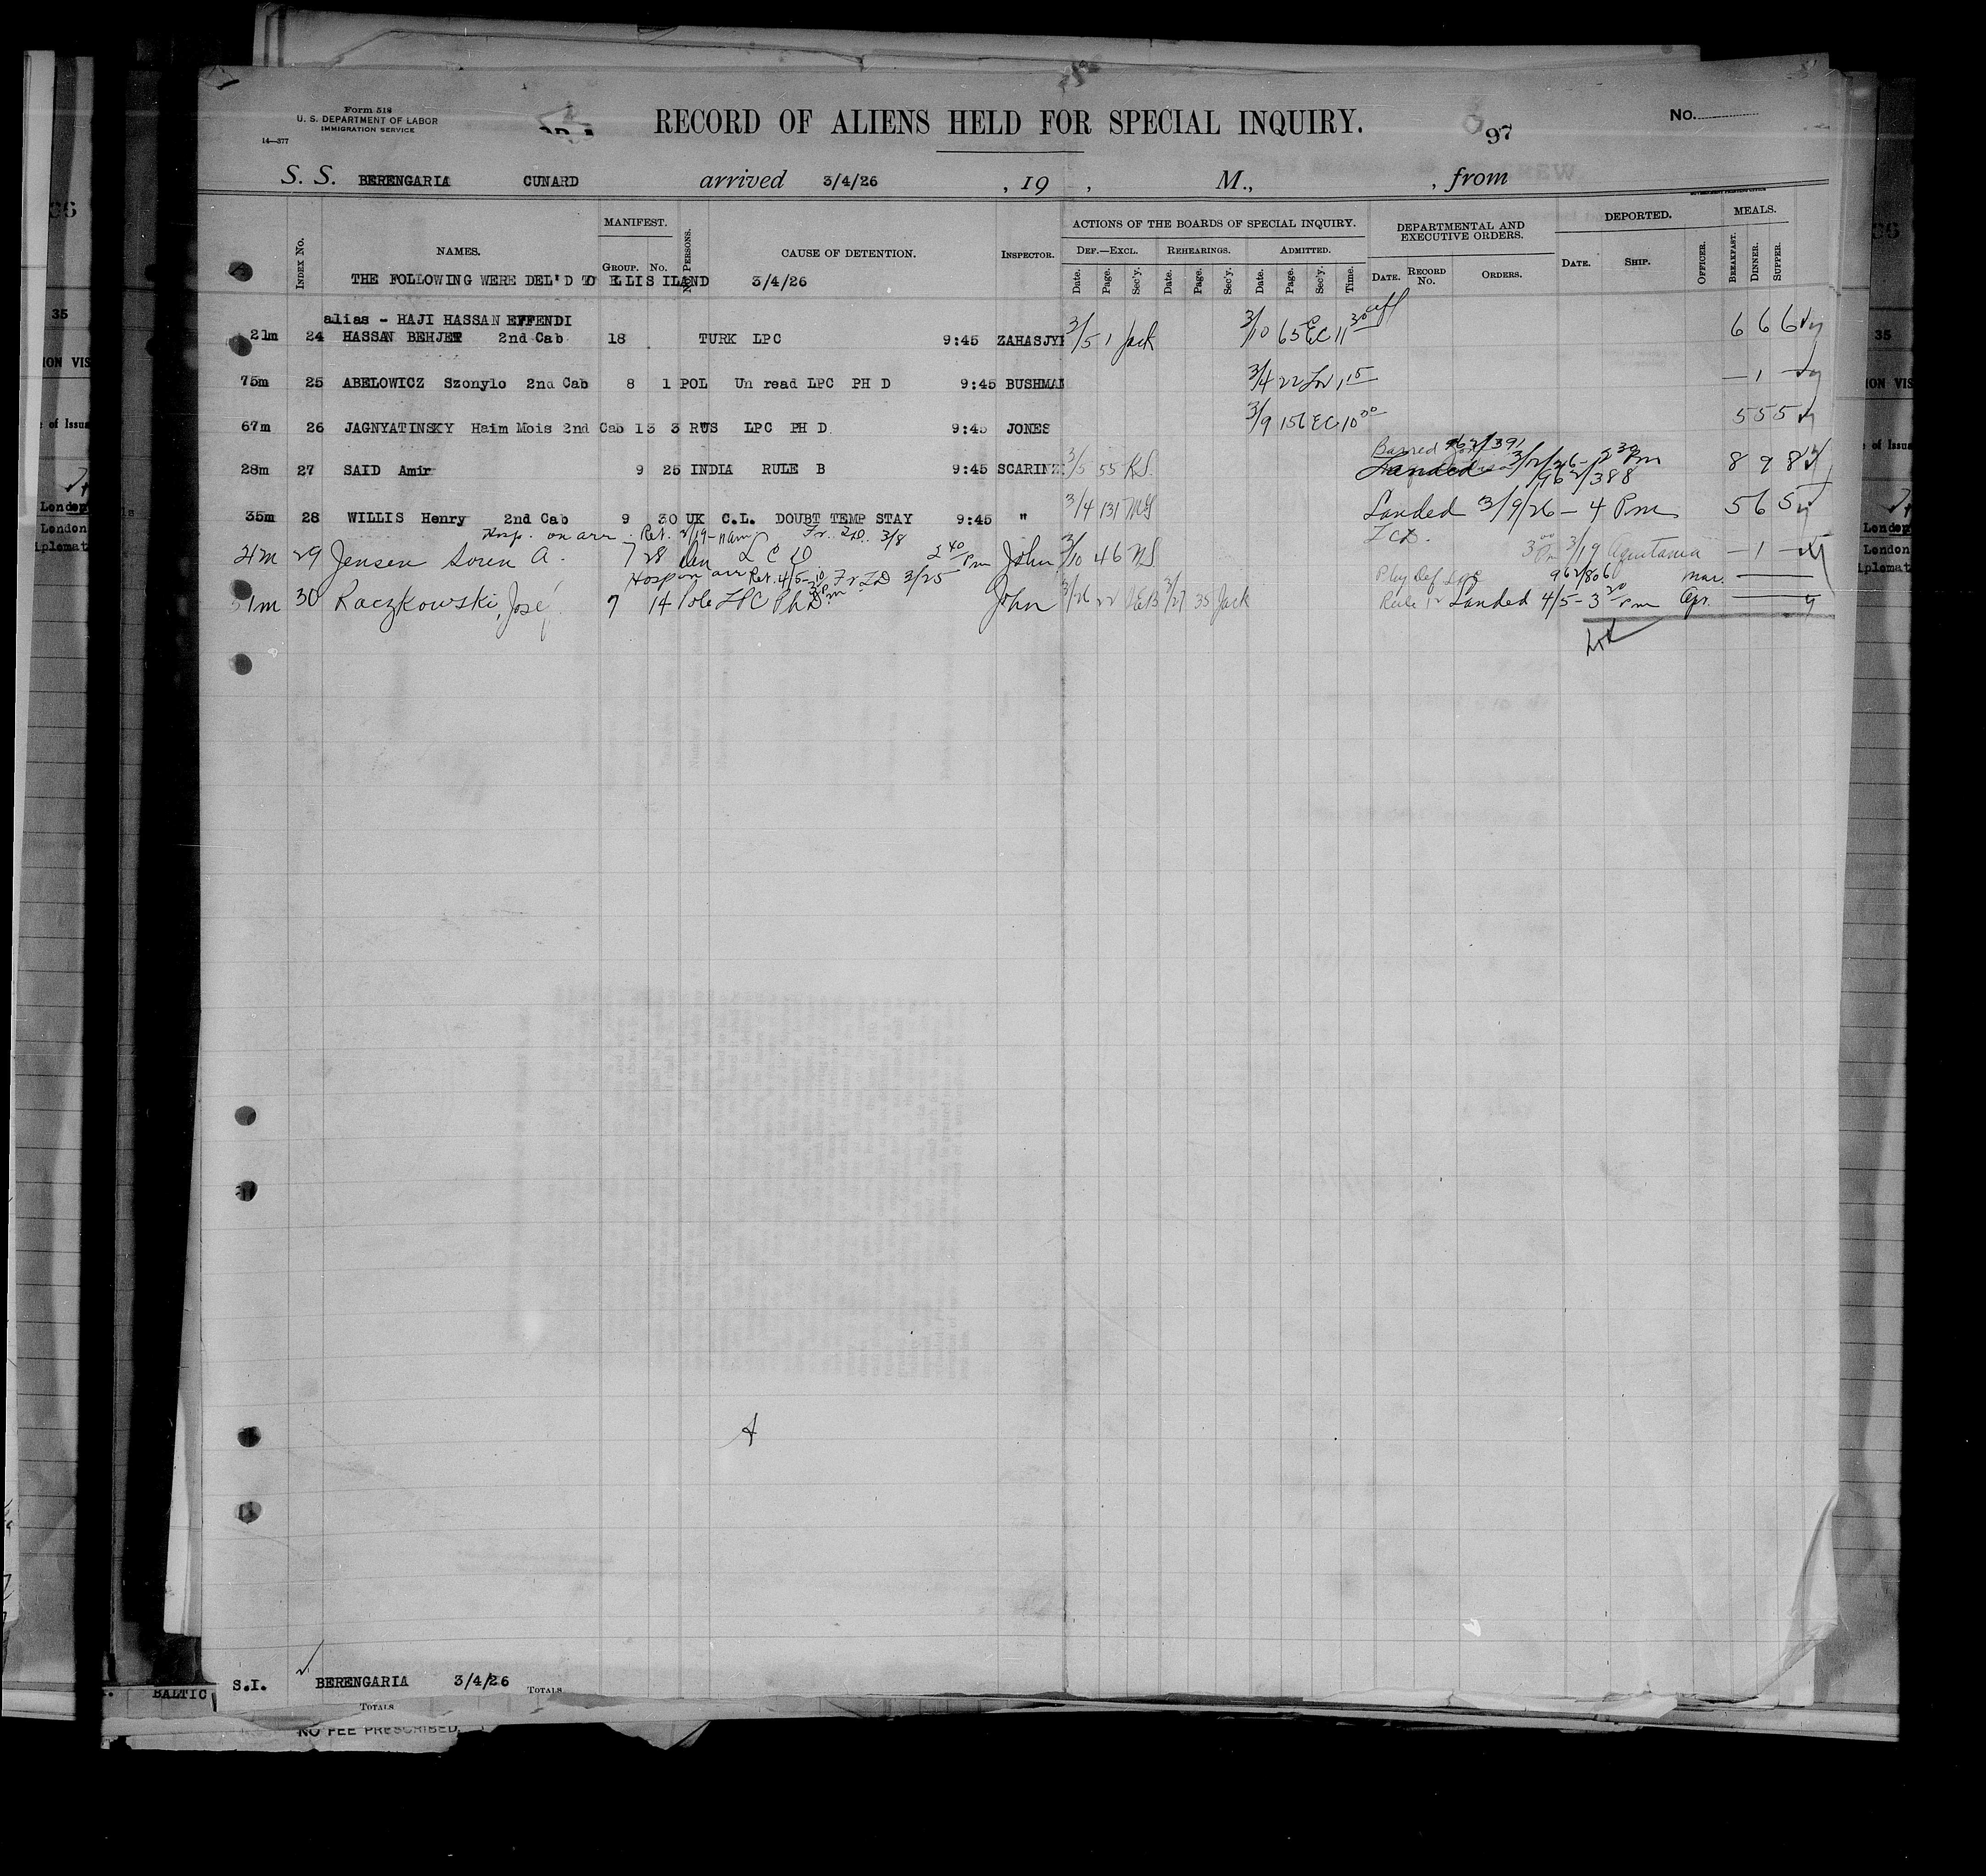 Form 518
U. S. DEPARTMENT OF LABOR
IMMIGRATION SERVICE
14—377
RECORD OF ALIENS HELD FOR SPECIAL INQUIRY.
97
No.
S. S. BERENGARIA CUNARD arrived 3/4/26 , 19 , M., , from
INDEX No. NAMES. MANIFEST. GROUP. No. No. PERSONS. CAUSE OF DETENTION. INSPECTOR.
ACTIONS OF THE BOARDS OF SPECIAL INQUIRY.
DEF.—EXCL. REHEARINGS. ADMITTED.
Date. Page. Sec'y. Date. Page. Sec'y. Date. Page. Sec'y. Time.
DEPARTMENTAL AND EXECUTIVE ORDERS.
DATE. RECORD No. ORDERS.
DEPORTED.
DATE. SHIP. OFFICER.
MEALS.
BREAKFAST. DINNER. SUPPER.
THE FOLLOWING WERE DEL'D TO ELLIS ILAND 3/4/26
alias - HAJI HASSAN EFFENDI
21m 24 HASSAN BEHJET 2nd Cab 18 TURK LPC 9:45 ZAHASJY 3/5 1 Jack 3/10 65 EC 11 30 6 6 6
75m 25 ABELOWICZ Szonylo 2nd Cab 8 1 POL Un read LPC PH D 9:45 BUSHMAN 3/4 22 1 15 — 1 —
67m 26 JAGNYATINSKY Haim Mois 2nd Cab 13 3 RUS LPC PH D 9:45 JONES 3/9 156 EC 10 30 5 5 5
Barred 962/391
28m 27 SAID Amir 9 25 INDIA RULE B 9:45 SCARINZ 3/5 55 RS Landed 3/12/26 - 2 30 Pm 8 9 8
962/388
35m 28 WILLIS Henry 2nd Cab 9 30 UK C.L. DOUBT TEMP STAY 9:45 " 3/4 131 Landed 3/9/26 - 4 Pm 5 6 5
Hosp. on arr. Ret. 3/19-11am Fr. 3/8
29 Jensen Soren A. 7 28 Dan L C D 2 40 Pm John 3/10 46 3 00 Pm 3/19 Aquitania — 1 —
Hosp on arr Ret. 4/5- Fr LD 3/25
51m 30 Raczkowski, José 7 14 Pole LPC PhD John 3/26 22 3/27 35 Jack
Phy Def LPC 962/806 Mar.
Rule 12 Landed 4/5 - 3 20 Pm Apr.
S.I. BERENGARIA 3/4/26 TOTALS
BALTIC
TOTALS
NO FEE PRESCRIBED
35
ION VIS
of Issua
London
London
iplomat
35
ION VIS
of Issua
London
London
iplomat